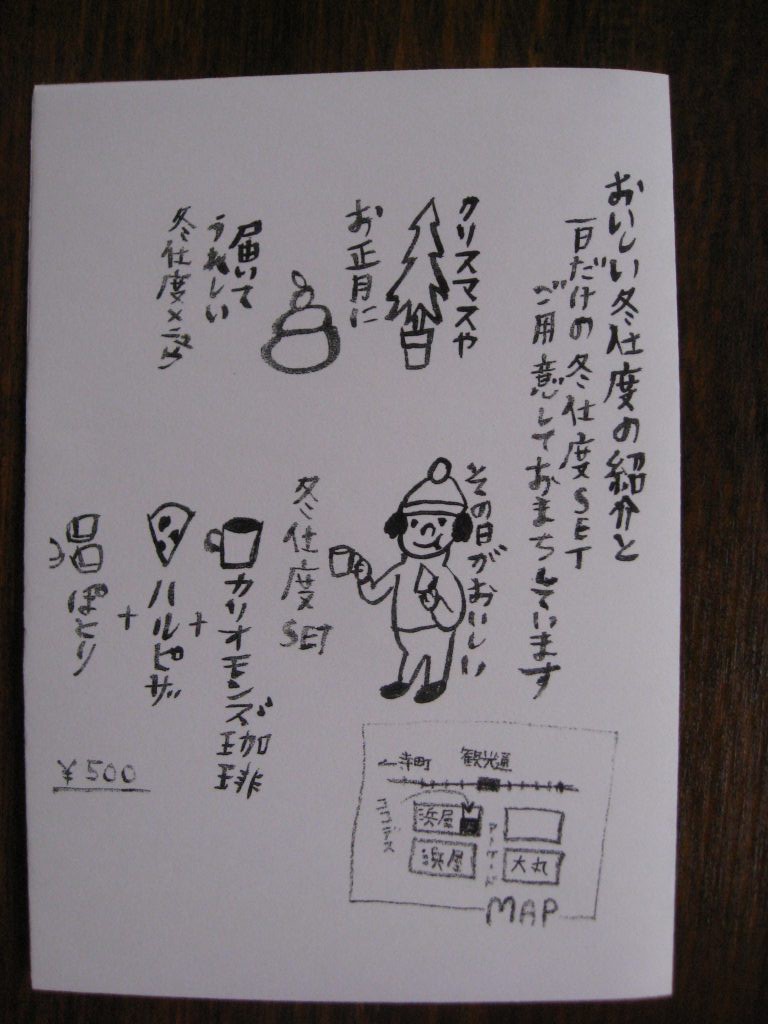 おいしい冬仕度の紹介と
一日だけの冬仕度SET
ご用意しておまちしています
クリスマスや
お正月に
届いて
うれしい
冬仕度メニュー
その日がおいしい
冬仕度SET
カリオモンズ珈琲
+
ハルピザ
+
ぽとり
¥500
寺町
観光通
ココデス
浜屋
アーケード
浜屋
大丸
MAP